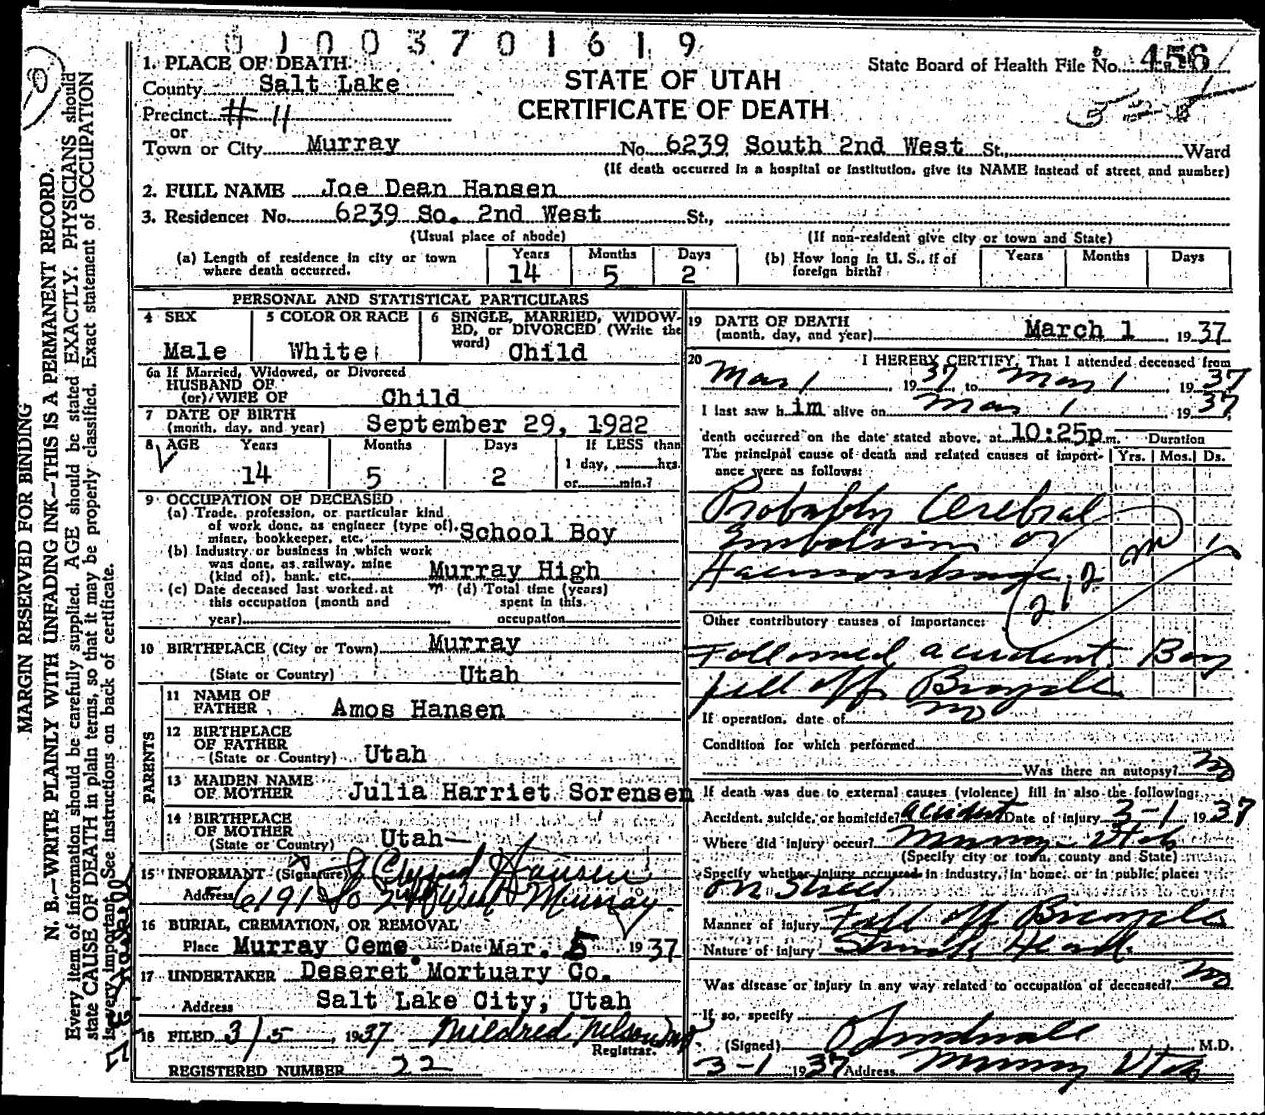 0 1 0 0 3 7 0 1 6 1 9
State Board of Health File No. 456
STATE OF UTAH
CERTIFICATE OF DEATH
1. PLACE OF DEATH
County Salt Lake
Precinct # 11
or
Town or City Murray No. 6239 South 2nd West St., Ward
(If death occurred in a hospital or institution, give its NAME instead of street and number)
2. FULL NAME Joe Dean Hansen
3. Residence: No. 6239 So. 2nd West St.,
(Usual place of abode) (If non-resident give city or town and State)
(a) Length of residence in city or town where death occurred. Years 14 Months 5 Days 2
(b) How long in U. S., if of foreign birth? Years Months Days
PERSONAL AND STATISTICAL PARTICULARS
4 SEX Male
5 COLOR OR RACE White
6 SINGLE, MARRIED, WIDOWED, or DIVORCED (Write the word) Child
6a If Married, Widowed, or Divorced
HUSBAND OF
(or) WIFE OF Child
7 DATE OF BIRTH
(month, day, and year) September 29, 1922
8 AGE Years 14 Months 5 Days 2 If LESS than 1 day, hrs. or min.?
9 OCCUPATION OF DECEASED
(a) Trade, profession, or particular kind
of work done, as engineer (type of).
miner, bookkeeper, etc. School Boy
(b) Industry or business in which work
was done, as railway, mine
(kind of), bank, etc. Murray High
(c) Date deceased last worked at
this occupation (month and
year)
(d) Total time (years)
spent in this
occupation
10 BIRTHPLACE (City or Town) Murray
(State or Country) Utah
PARENTS
11 NAME OF FATHER Amos Hansen
12 BIRTHPLACE OF FATHER
(State or Country) Utah
13 MAIDEN NAME OF MOTHER Julia Harriet Sorensen
14 BIRTHPLACE OF MOTHER
(State or Country) Utah
15 INFORMANT (Signature) Hansen
Address 6191 So 2nd West Murray
16 BURIAL, CREMATION, OR REMOVAL
Place Murray Ceme. Date Mar. 5 1937
17 UNDERTAKER Deseret Mortuary Co.
Address Salt Lake City, Utah
18 FILED 3/5, 1937 Mildred Nelson
Registrar.
REGISTERED NUMBER 22
19 DATE OF DEATH
(month, day, and year) March 1, 1937
20 I HEREBY CERTIFY, That I attended deceased from
Mar 1 1937 to Mar 1 1937
I last saw him alive on Mar 1 1937
death occurred on the date stated above, at 10:25p.m. Duration
The principal cause of death and related causes of importance were as follows: Yrs. Mos. Ds.
Probably Cerebral
Embolism or
Haemorrhage
Other contributory causes of importance:
Followed accident. Boy
fell off Bicycle
If operation, date of no
Condition for which performed
Was there an autopsy? no
If death was due to external causes (violence) fill in also the following:
Accident, suicide, or homicide? accident Date of injury 3-1 1937
Where did injury occur? Murray Utah
(Specify city or town, county and State)
Specify whether injury occurred in industry, in home, or in public place:
on Street
Manner of injury Fall off Bicycle
Nature of injury Struck Head.
Was disease or injury in any way related to occupation of deceased? no
If so, specify
(Signed) M.D.
3-1 1937 Address Murray Utah
MARGIN RESERVED FOR BINDING
N. B.—WRITE PLAINLY WITH UNFADING INK—THIS IS A PERMANENT RECORD.
Every item of information should be carefully supplied. AGE should be stated EXACTLY. PHYSICIANS should
state CAUSE OF DEATH in plain terms, so that it may be properly classified. Exact statement of OCCUPATION
is very important. See instructions on back of certificate.